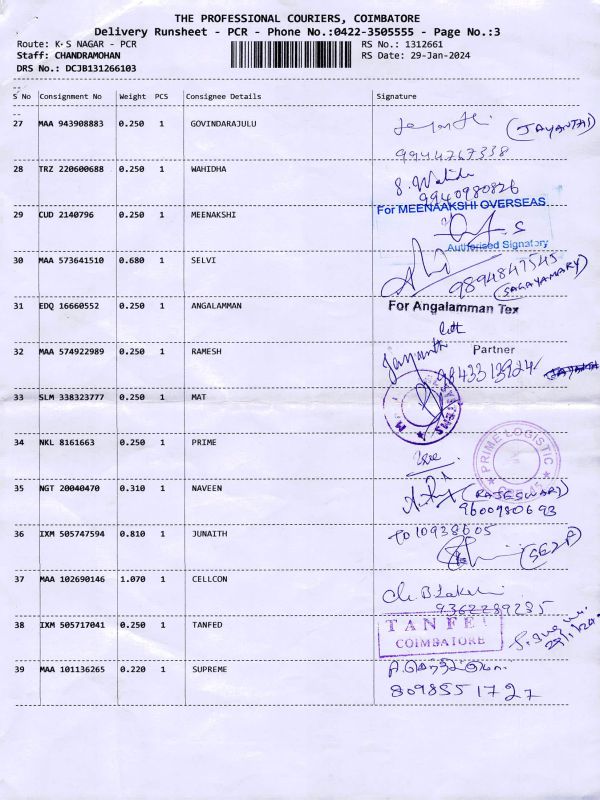 THE PROFESSIONAL COURIERS, COIMBATORE
Delivery Runsheet - PCR - Phone No.:0422-3505555 - Page No.:3
Route: K S NAGAR - PCR
RS No.: 1312661
Staff: CHANDRAMOHAN
RS Date: 29-Jan-2024
DRS No.: DCJB131266103
S No Consignment No Weight PCS Consignee Details Signature
27 MAA 943908883 0.250 1 GOVINDARAJULU
(JAYANTHI)
9944767338
28 TRZ 220600688 0.250 1 WAHIDHA
9940980826
For MEENAAKSHI OVERSEAS
29 CUD 2140796 0.250 1 MEENAKSHI
Authorised Signatory
30 MAA 573641510 0.680 1 SELVI
9894847545
(SAGAYAMARY)
31 EDQ 16660552 0.250 1 ANGALAMMAN
For Angalamman Tex
32 MAA 574922989 0.250 1 RAMESH
Jayanth
Partner
9843313924
33 SLM 338323777 0.250 1 MAT
34 NKL 8161663 0.250 1 PRIME
PRIME LOGISTIC
35 NGT 20040470 0.310 1 NAVEEN
(RAJESWARI)
9600980693
36 IXM 505747594 0.810 1 JUNAITH
37 MAA 102690146 1.070 1 CELLCON
9362289285
38 IXM 505717041 0.250 1 TANFED
TANFE
COIMBATORE
39 MAA 101136265 0.220 1 SUPREME
8098551727